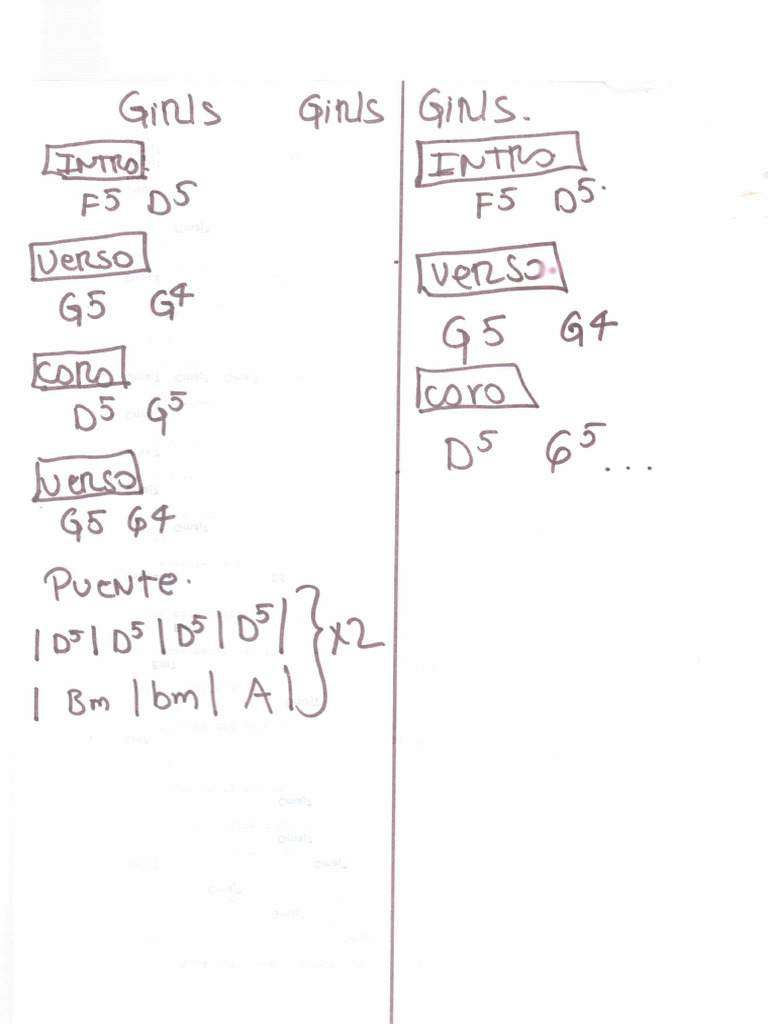 Girls Girls Girls.
INTRO
F5 D5
Verso
G5 G4
coro
D5 G5
Verso
G5 G4
Puente.
| D5 | D5 | D5 | D5 | } x2
| Bm | bm | A |
INTRO
F5 D5.
Verso.
G5 G4
coro
D5 G5...